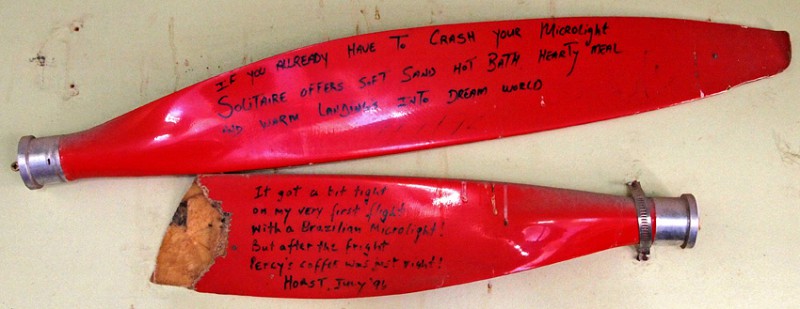 IF YOU ALLREADY HAVE TO CRASH YOUR MICROLIGHT
SOLITAIRE OFFERS SOFT SAND HOT BATH HEARTY MEAL
AND WARM LANDINGS INTO DREAM WORLD
It got a bit tight
on my very first flight
with a Brazilian Microlight!
But after the fright
Percy's coffee was just right!
HORST,